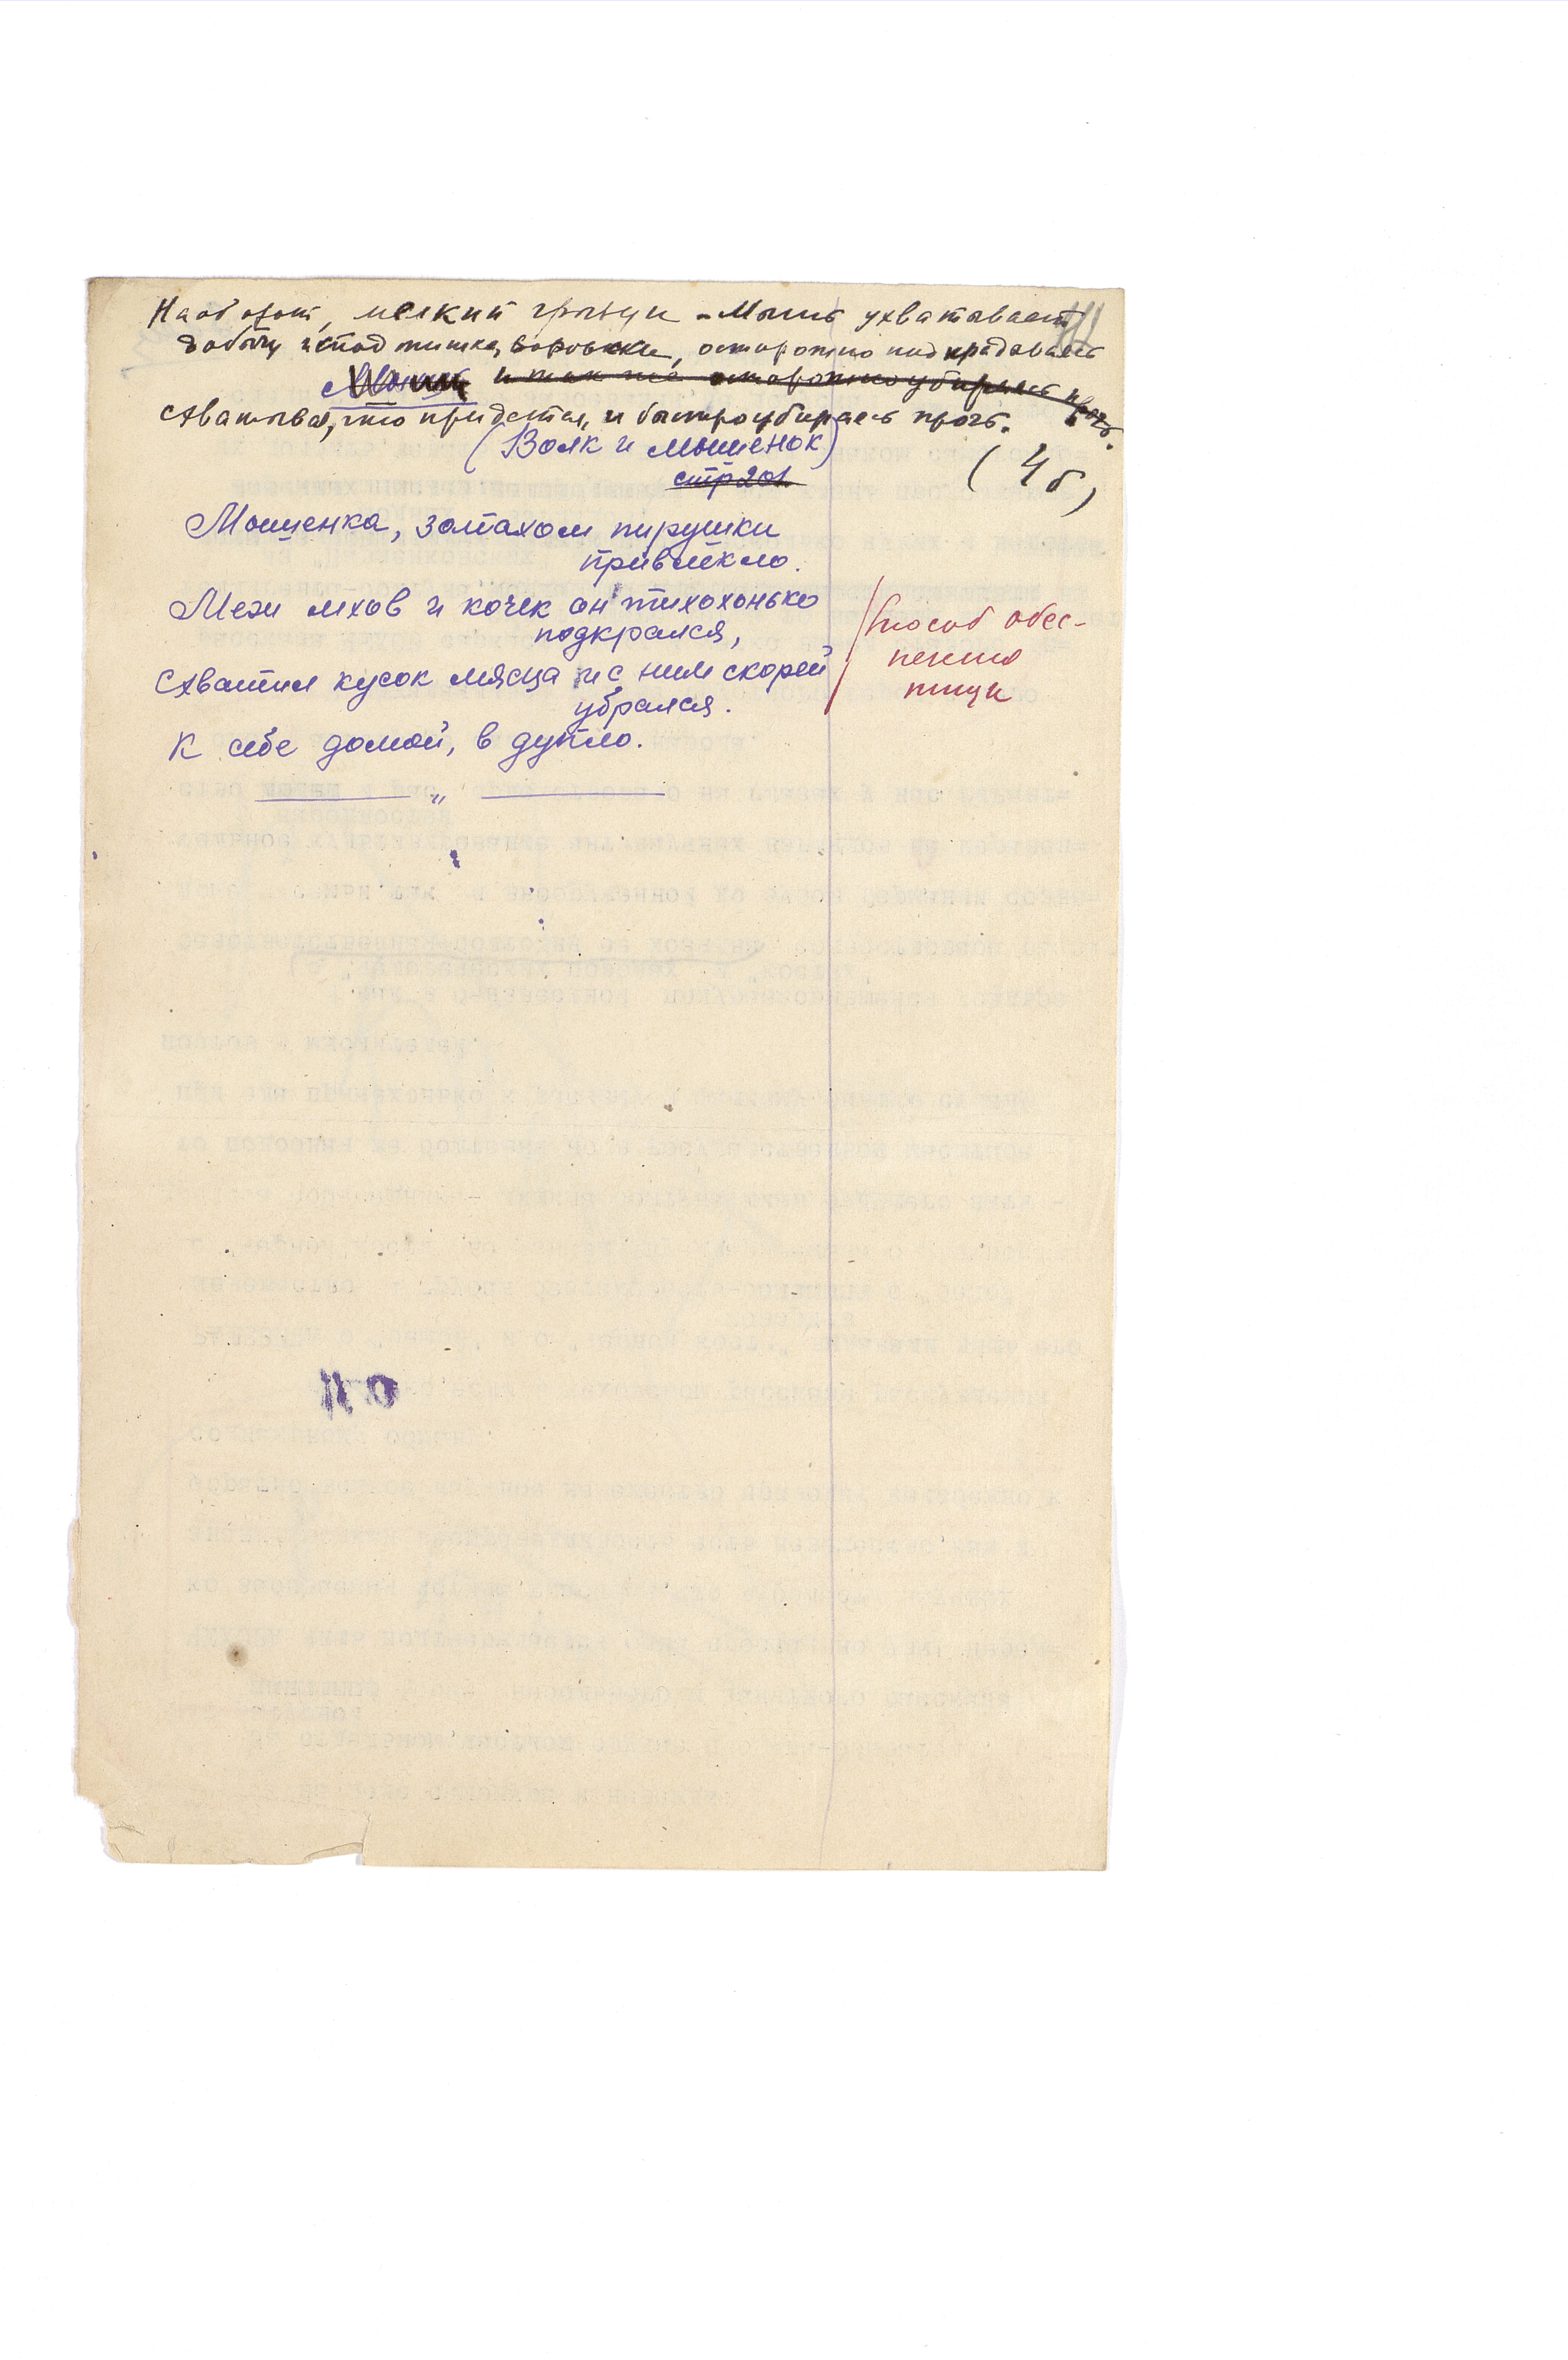 Наоборот, мелкий грызун - Мышь ухватывает
добычу исподтишка, воровски, осторожно подкрадываясь
Мышь и так же осторожно убираясь прочь.
Хватывая, что придется, и быстро убираясь прочь.
(Волк и мышенок)
стр 201
(4 б)
Мышенка, запахом пирушки
привлекло.
Меж мхов и кочек он тихохонько
подкрался,
Схватил кусок мясца и с ним скорей
убрался.
К себе домой, в дупло.
Способ обес-
печения
пищи